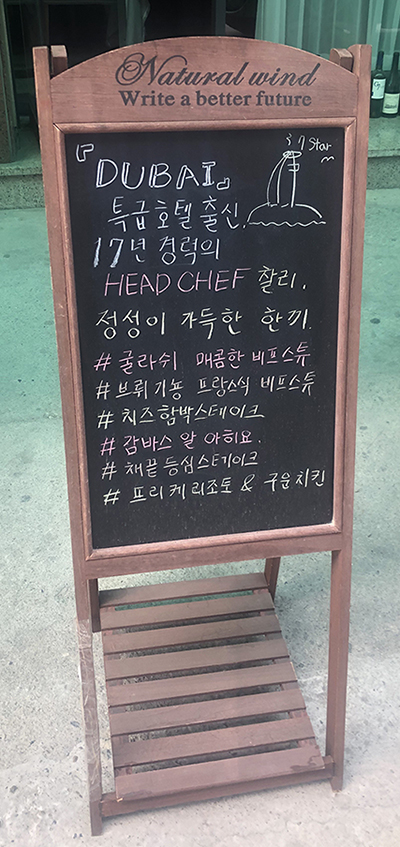 Natural wind
Write a better future
7 Star
『DUBAI』
특급호텔 출신.
17년 경력의
HEAD CHEF 찰리.
정성이 가득한 한끼.
# 굴라쉬 매콤한 비프스튜
# 브뤼기뇽 프랑스식 비프스튜
# 치즈함박스테이크
# 감바스 알 아히요.
# 채끝 등심스테이크
# 프리케 리조토 & 구운치킨